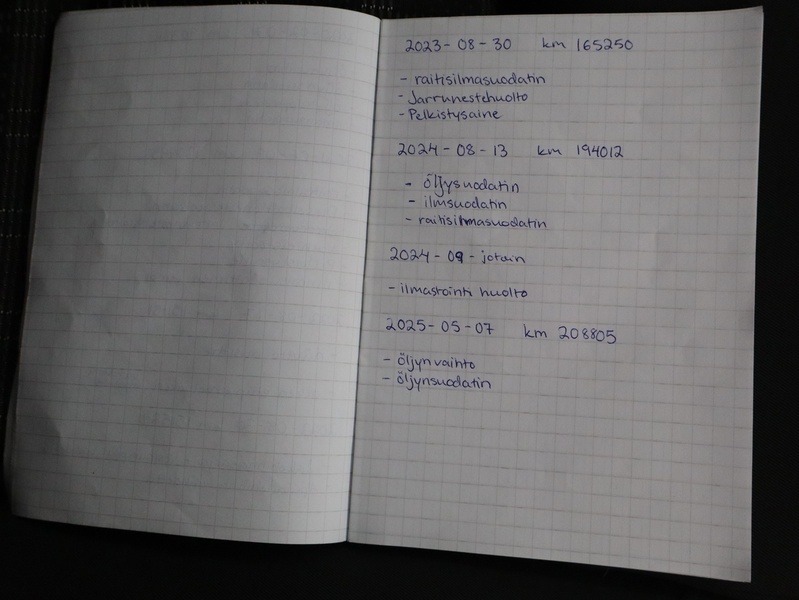 2023-08-30 km 165250
- raitisilmasuodatin
- Jarrunestehuolto
- Pelkistysaine
2024-08-13 km 194012
- öljysuodatin
- ilmsuodatin
- raitisilmasuodatin
2024-09-jotain
- ilmastointi huolto
2025-05-07 km 208805
- öljynvaihto
- öljynsuodatin